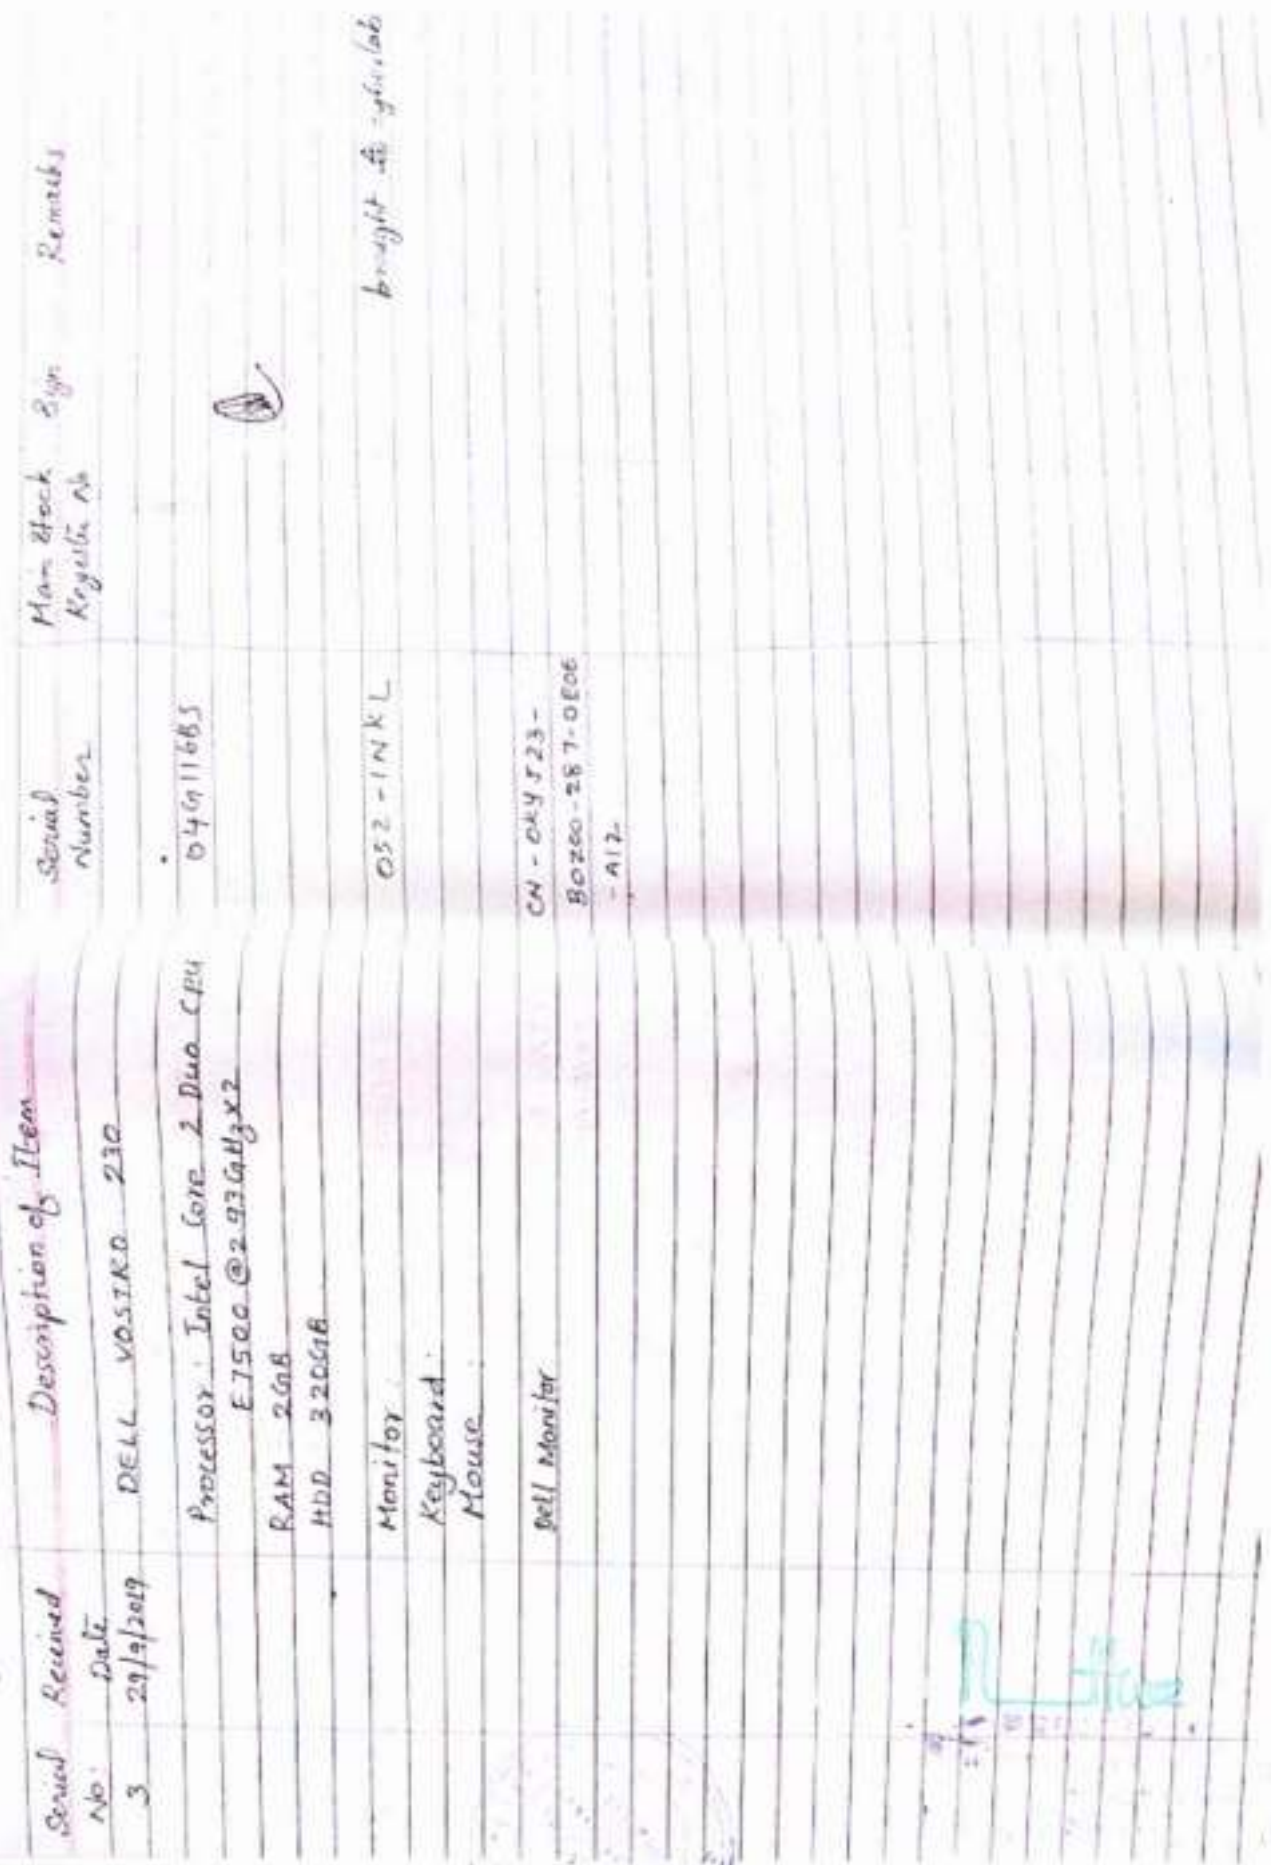 Serial No. Received Date Description of Item Serial Number Main Stock Register No Sign Remarks
3 29/9/2019 DELL VOSTRO 230
Processor: Intel Core 2 Duo CPU 04G116BS
E7500 @2.93GHz×2
RAM 2GB
HDD 320GB
Monitor 032-INKL brought
Keyboard
Mouse
Dell Monitor CN-0KY523-
-A12